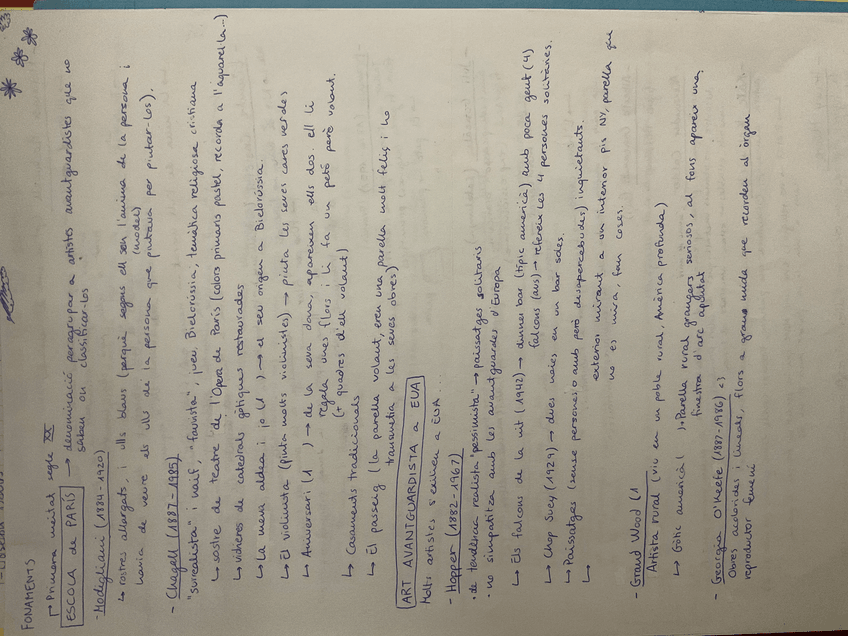 FONAMENTS
Primera meitat segle XX
ESCOLA de PARÍS → denominació per agrupar a artistes avantguardistes que no
sabem on classificar-los
- Modigliani (1884-1920)
↳ rostres allargats, i ulls blaus (perquè segons ell son l'ànima de la persona i
(model)
havia de veure els ulls de la persona que pintava per pintar-los).
- Chagall (1887-1985)
"surrealista" i naïf, "fauvista", jueu. Bielorússia, temàtica religiosa cristiana
↳ sostre de teatre de l'Òpera de París (colors primaris pastel, recorda a l'aquarel·la...)
↳ vidrieres de catedrals gòtiques restaurades
↳ La meva aldea i jo (1 ) → el seu origen a Bielorússia.
↳ El violinista (pinta molts violinistes) → pinta les seves cares verdes
↳ Aniversari (1 ) → de la seva dona, apareixen ells dos. ell li
regala unes flors i li fa un petó però volant.
(+ quadres d'ell volant)
↳ Casaments tradicionals
↳ El passeig (la parella volant, eren una parella molt feliç i ho
transmetia a les seves obres)
ART AVANTGUARDISTA a EUA
Molts artistes s'exilien a EUA...
- Hopper (1882-1967)
· de tendència realista "pessimista" → paissatges solitaris
· no simpatitza amb les avantguardes d'Europa
↳ Els falcons de la nit (1942) → dinner bar (típic americà) amb poca gent (4)
falcons (aus) → refereix les 4 persones solitàries.
↳ Chop Suey (1929) → dues noies en un bar soles.
↳ Paissatges (sense persones o amb però desapercebudes) inquietants.
↳ exterior mirant a un interior pis NY, parella que
no es mira, fan coses.
- Grand Wood (1
Artista rural (viu en un poble rural, Amèrica profunda)
↳ Gòtic americà ( ) → Parella rural grangers seriosos, al fons apareix una
finestra d'arc apuntat
- Georgia O'Keefe (1887-1986)
Obres acolorides i lineals, flors a grans mida que recorden al òrgan
reproductor femení